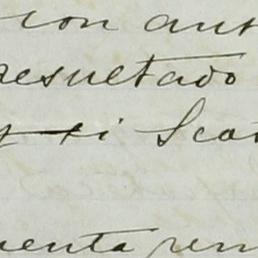 con ant
resultado
y si Scot
uenta rem